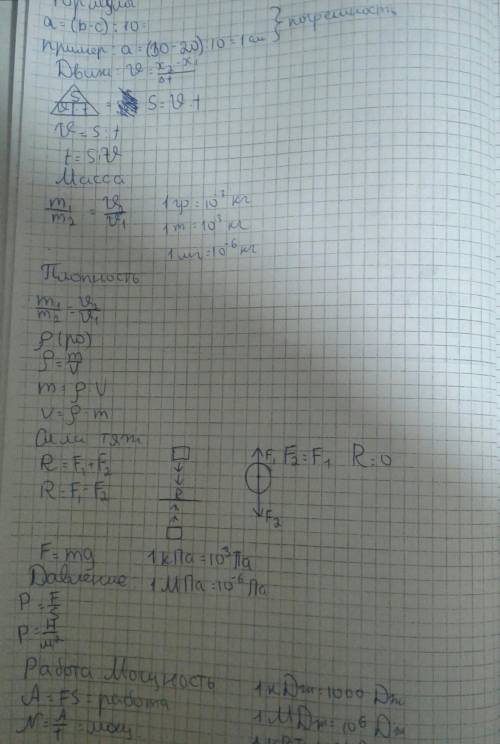 Формулы
a = (b-c) : 10 =
} погрешность
пример: a = (30-20):10 = 1 см
Движ - V = x₂-x₁/Δt
S
V t
= S = V·t
V = S:t
t = S:V
Масса
m₁/m₂ = V₂/V₁
1 гр = 10³ кг
1 т = 10³ кг
1 мг = 10⁻⁶ кг
Плотность
m₁/m₂ = V₂/V₁
ρ (ро)
ρ = m/V
m = ρ·V
v = ρ·m
Силы тяж
R = F₁+F₂
R = F₁-F₂
R
F₁ F₂ = F₁ R = 0
F₂
F = mg
1 кПа = 10³ Па
Давление 1 МПа = 10⁻⁶ Па
P = F/S
P = Н/м²
Работа Мощность
1 кДж = 1000 Дж
A = FS = работа
1 МДж = 10⁶ Дж
N = A/t = мощ.